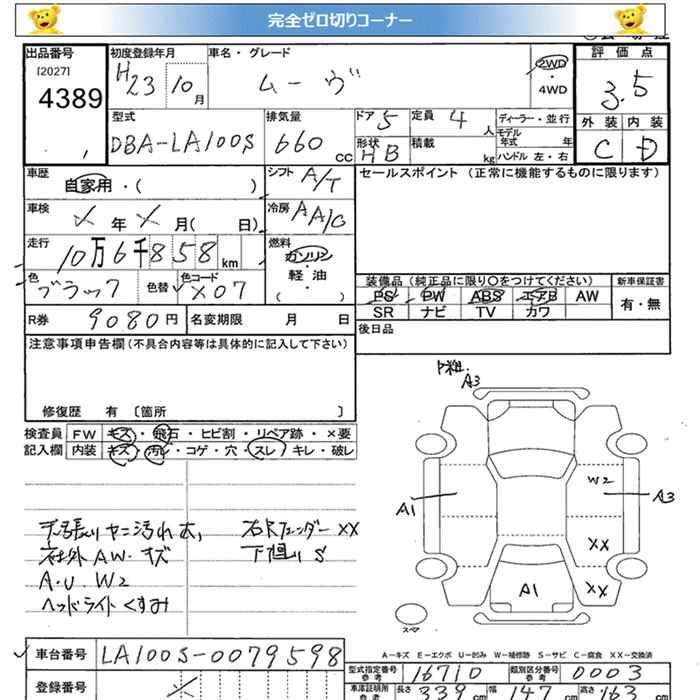 完全ゼロ切りコーナー
出品番号
[2027]
4389
初度登録年月
H23 10月
車名・グレード
ムーヴ
2WD
・
4WD
評価点
3.5
型式
DBA-LA100S
排気量
660 cc
ドア 5
定員 4 人
形状 HB
積載 kg
ディーラー・並行
モデル年式 年
ハンドル 左・右
外装 内装
C D
車歴
自家用・( )
シフト A/T
セールスポイント (正常に機能するものに限ります)
車検
年 月( 日)
冷房 AA/C
走行
10万6千858km
燃料
ガソリン
・
軽・油
( )
色
ブラック
色替
色コード
X07
装備品 (純正品に限り○をつけてください)
新車保証書
PS PW ABS エアB AW
SR ナビ TV カワ
有・無
R券 9080円
名変期限 月 日
後日品
注意事項申告欄(不具合内容等は具体的に記入して下さい)
修復歴 有 〔箇所 〕
検査員 FW キズ・飛石・ヒビ割・リペア跡・×要
記入欄 内装 キズ・汚レ・コゲ・穴・スレ・キレ・破レ
A3
W2
A1
A3
XX
XX
A1
スペア
天張りヤニ汚れ大,
右Rフェンダー XX
社外AW・キズ
下廻りS
A・U W2
ヘッドライトくすみ
A-キズ E-エクボ U-凹み W-補修跡 S-サビ C-腐食 XX-交換済
車台番号 LA100S-0079598
型式指定番号 参考 16710
類別区分番号 参考 0003
登録番号
車庫証明所 参考
長さ 339 cm 幅 147 cm 高さ 163 cm